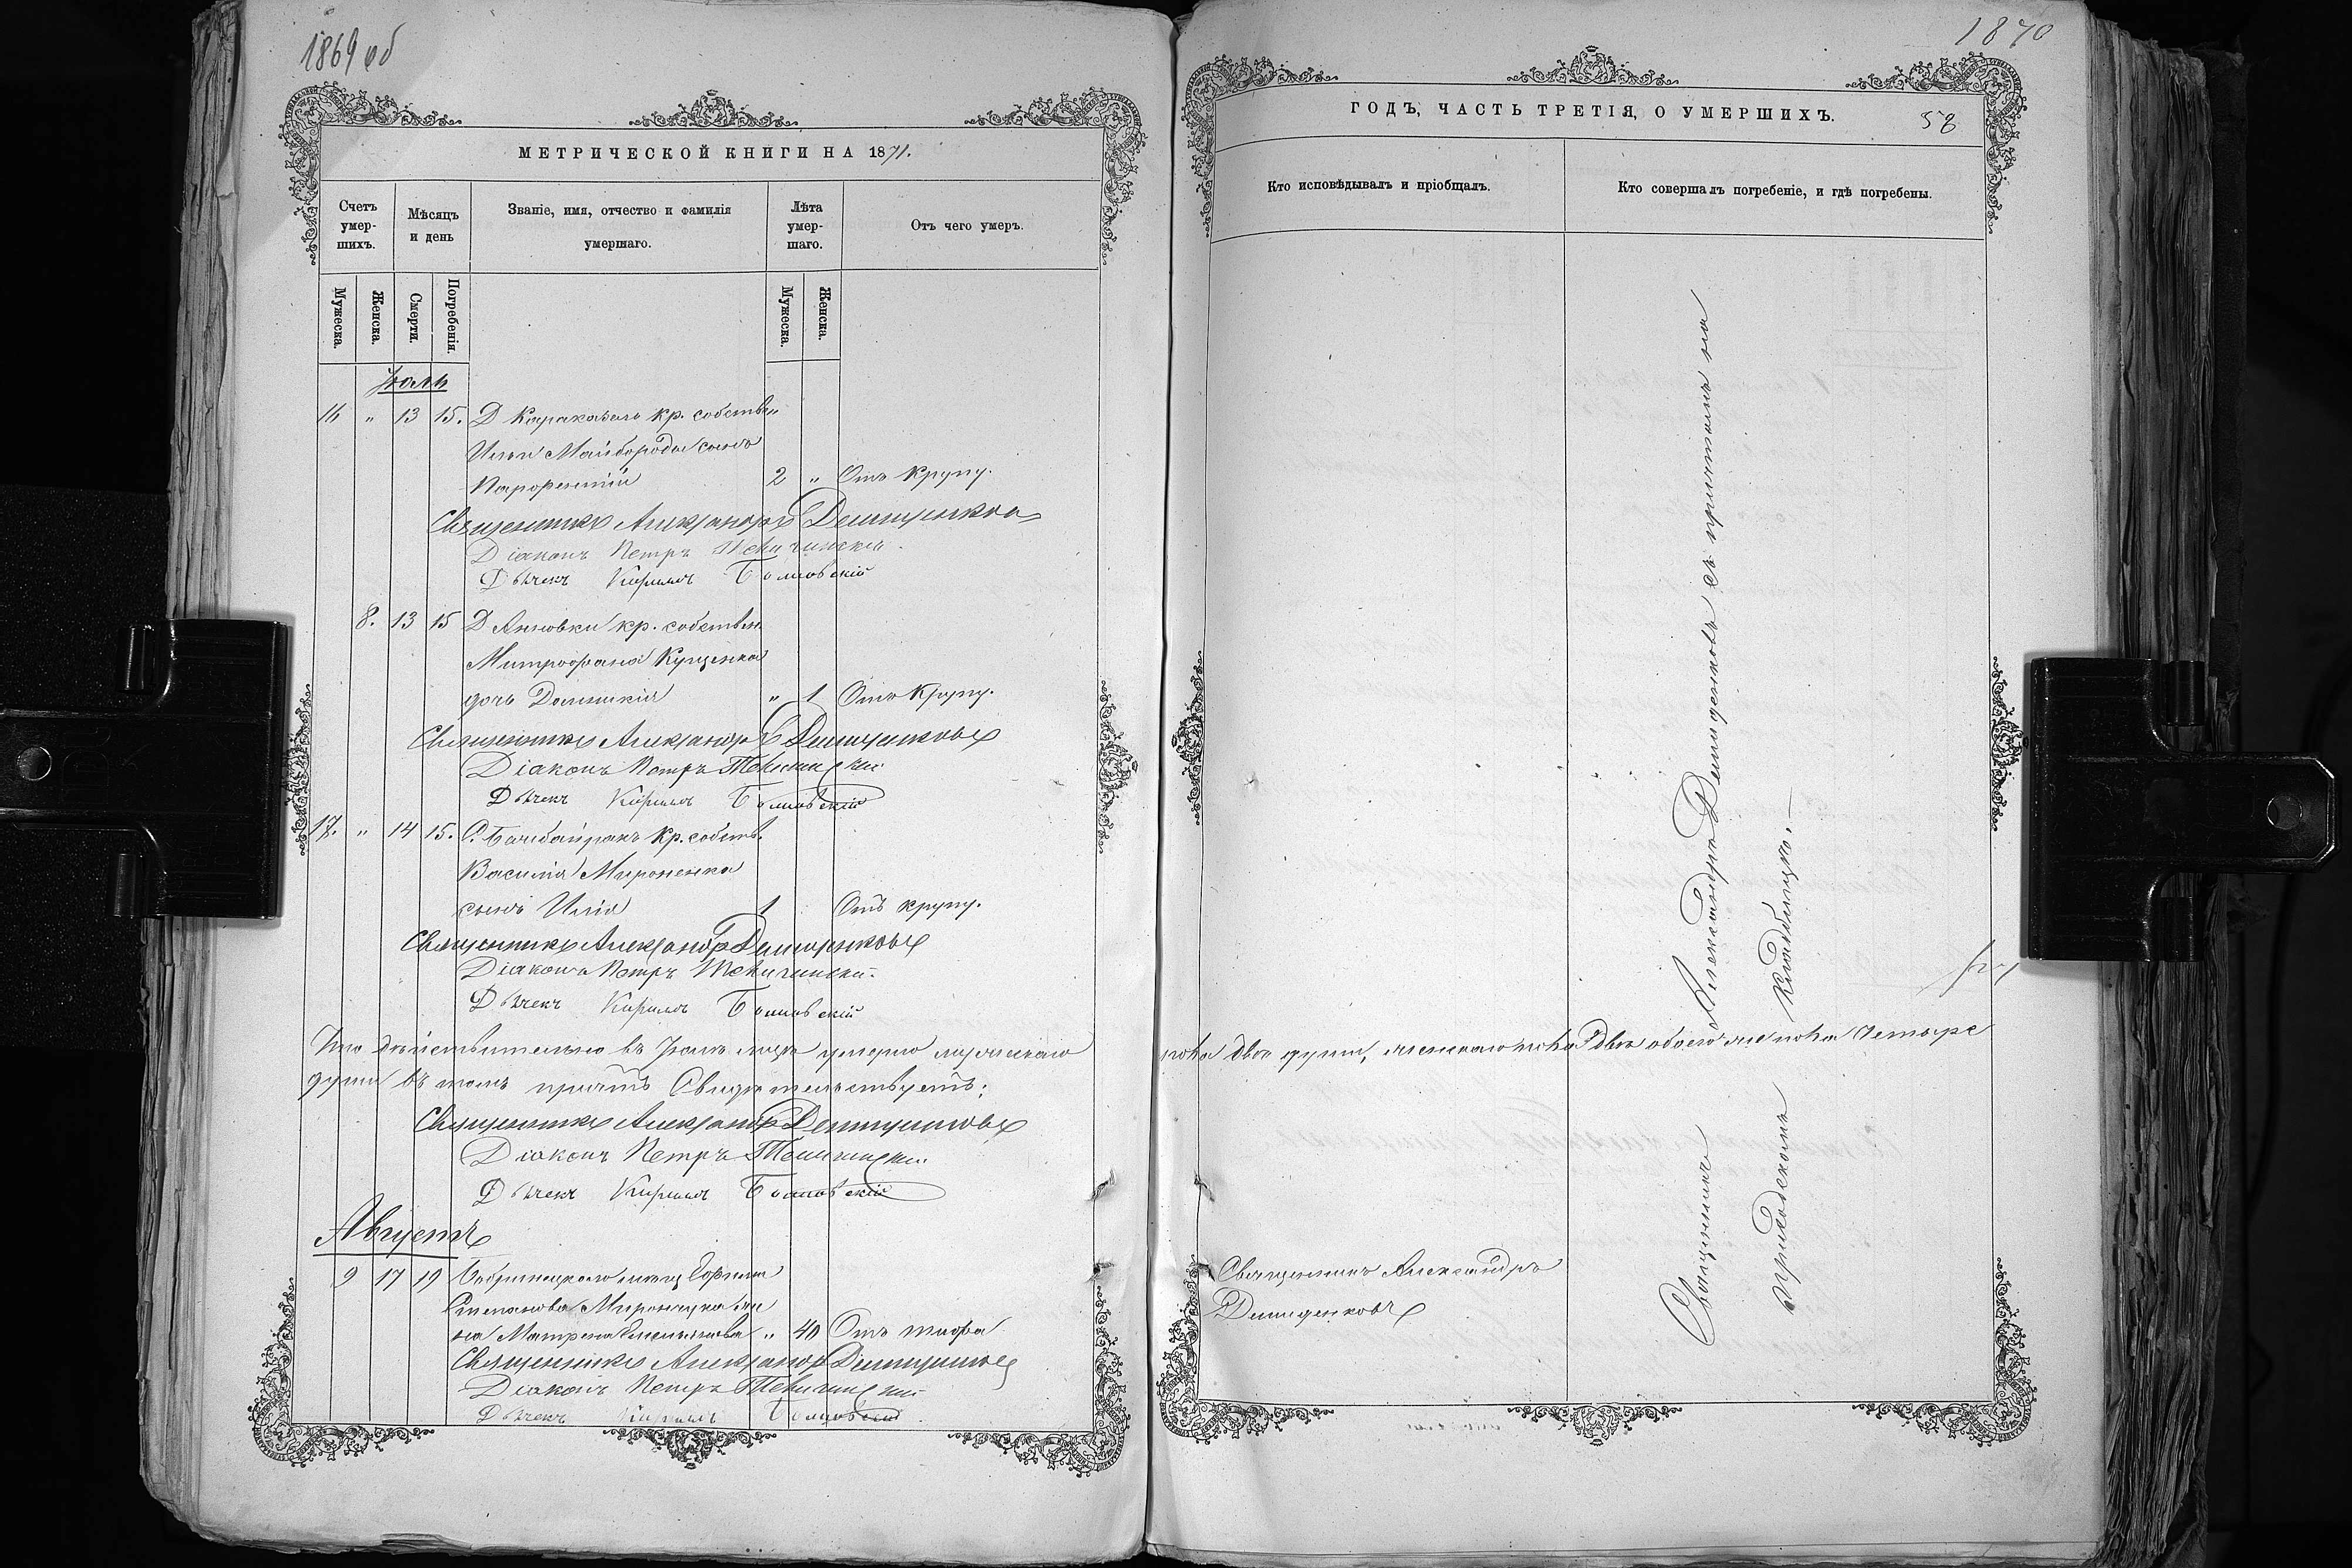 1869 об
МЕТРИЧЕСКОЙ КНИГИ НА 1871.
Счетъ умер-шихъ.
Мѣсяцъ и день
Званіе, имя, отчество и фамилія умершаго.
Лѣта умер-шаго.
Отъ чего умеръ.
Мужеска.
Женска.
Смерти.
Погребенія.
Мужеска.
Женска.
Іюль
16 " 13 15. Д кр. собствен
Ильи Майбороды сынъ
2 " Отъ Крупу.
Священникъ Александръ Демиденковъ
Діаконъ Петръ
Дьячекъ Кириллъ
8. 13 15 Д Анновки кр. собствен
Митрофана Куценка
дочь Домникія " 1 Отъ Крупу.
Священникъ Александръ Демиденковъ
Діаконъ Петръ
Дьячекъ Кириллъ
17. " 14 15. С. кр. собств.
Василія Мироненка
сынъ Илія 1 Отъ крупу.
Священникъ Александръ Демиденковъ
Діаконъ Петръ
Дьячекъ Кириллъ
Что дѣйствительно въ Іюлѣ умерло мужескаго
души въ томъ причтъ Свидѣтельствуетъ:
Священникъ Александръ Демиденковъ
Діаконъ Петръ
Дьячекъ Кириллъ
Августъ
9 17 19 Бобринецкаго Ефима
Степанова же
на Матрена " 40 Отъ тифа
Священникъ Александръ Демиденковъ
Діаконъ Петръ
Дьячекъ Кириллъ
1870
ГОДЪ, ЧАСТЬ ТРЕТІЯ, О УМЕРШИХЪ.
58
Кто исповѣдывалъ и пріобщалъ.
Кто совершалъ погребеніе, и гдѣ погребены.
пола двѣ души, женскаго пола двѣ обоего же пола четыре
Священникъ Александръ
Демиденковъ
Священникъ Александръ Демиденковъ съ причтомъ на
приходскомъ кладбищѣ.—